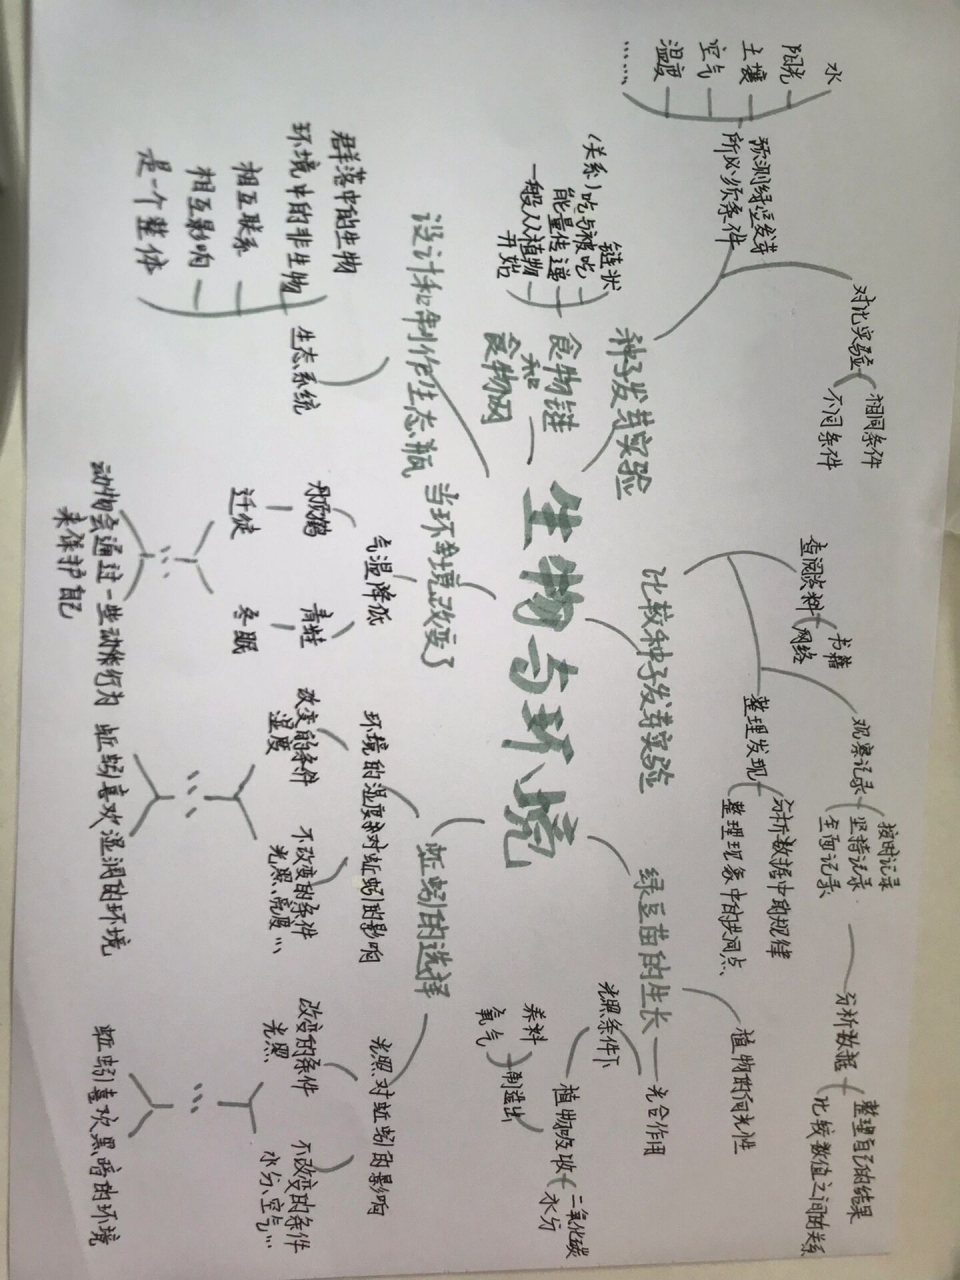 生物与环境
种子发芽实验
预测绿豆发芽
所必须条件
水
阳光
土壤
空气
温度
……
对比实验
相同条件
不同条件
比较种子发芽实验
查阅资料
书籍
网络
观察记录
按时记录
坚持记录
全面记录
分析数据
整理自己的结果
比较数值之间的关系
整理发现
分析数据中的规律
整理现象中的共同点
绿豆苗的生长
植物的向光性
光合作用
光照条件下
植物吸收
二氧化碳
水分
制造出
养料
氧气
食物链
和
食物网
链状
(关系)吃与被吃
能量传递
一般从植物
开始
设计和制作生态瓶
生态系统
群落中的生物
环境中的非生物
相互联系
相互影响
是一个整体
当环境改变了
气温降低
丹顶鹤
迁徙
青蛙
冬眠
动物会通过一些动作行为
来保护自己
蚯蚓的选择
环境的湿度对蚯蚓的影响
改变的条件
湿度
不改变的条件
光照、亮度…
蚯蚓喜欢湿润的环境
光照对蚯蚓的影响
改变的条件
光照
不改变的条件
水分、空气…
蚯蚓喜欢黑暗的环境